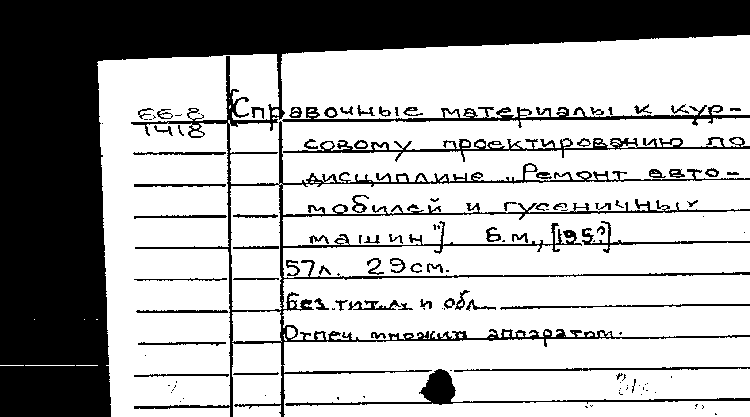 66-8
1418
[Справочные материалы к кур-
совому проектированию по
дисциплине „Ремонт авто-
мобилей и гусеничных
машин"]. Б.м., [195?].
57л. 29см.
Без тит.л. и обл.
Отпеч. множит. аппаратом.